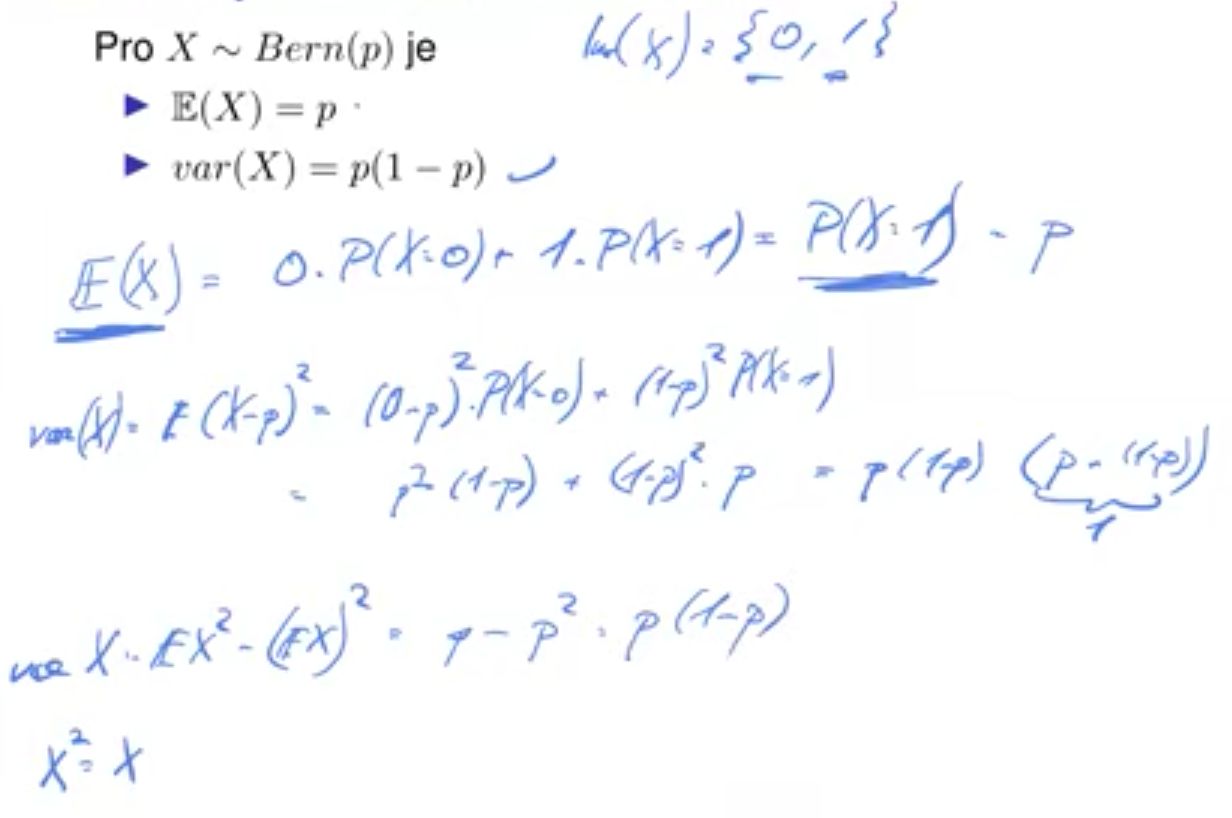 Pro X ~ Bern(p) je Im(X) = {0, 1}
▶ 𝔼(X) = p
▶ var(X) = p(1 − p) ✓
𝔼(X) = 0·P(X=0) + 1·P(X=1) = P(X=1) = p
var(X) = 𝔼(X-p)² = (0-p)²·P(X=0) + (1-p)² P(X=1)
= p²(1-p) + (1-p)²·p = p(1-p) (p + (1-p))
1
var X = 𝔼X² - (𝔼X)² = p - p² = p(1-p)
X² = X